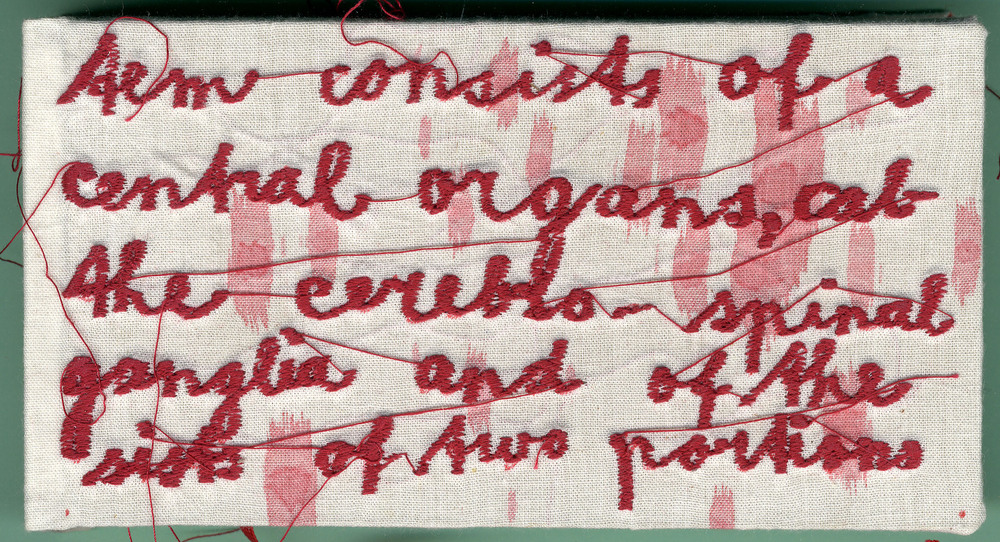 tem consists of a
central organs, cal
the cereblo-spinal
ganglia and of the
sists of two portions